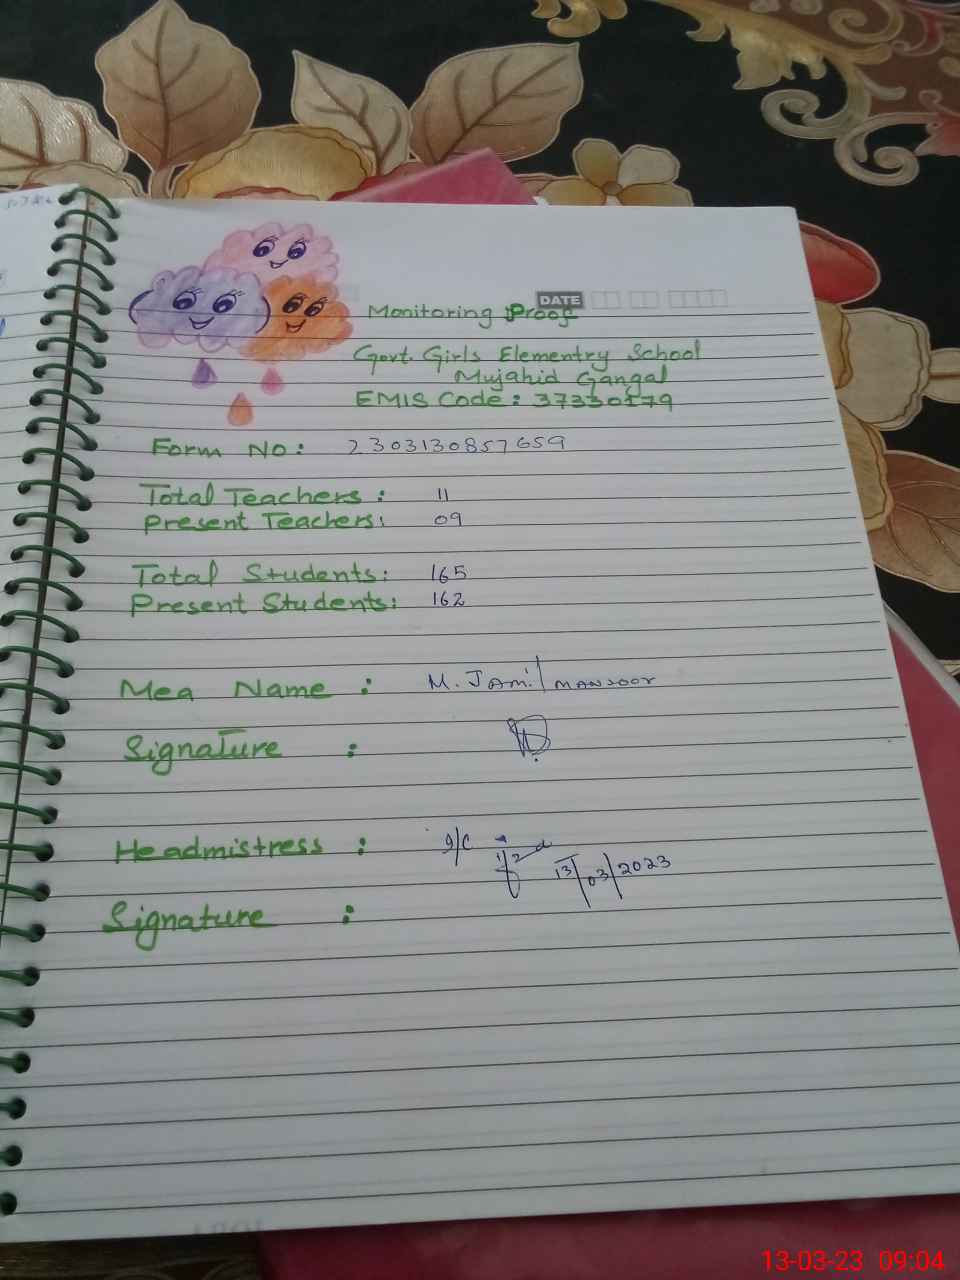 DATE
Monitoring Proof
Govt. Girls Elementry School
Mujahid Gangal
EMIS Code: 37330179
Form No: 2303130857659
Total Teachers: 11
Present Teachers: 09
Total Students: 165
Present Students: 162
Mea Name : M. Jamil Mansoor
Signature :
Headmistress : I/C
13/03/2023
Signature :
13-03-23 09:04